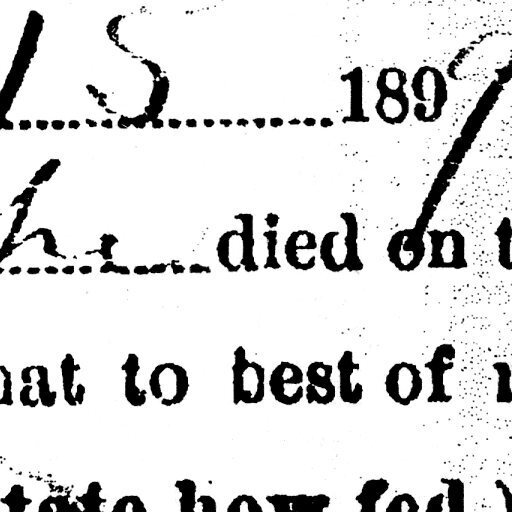 15 1897
he died on t
hat to best of
state how fed